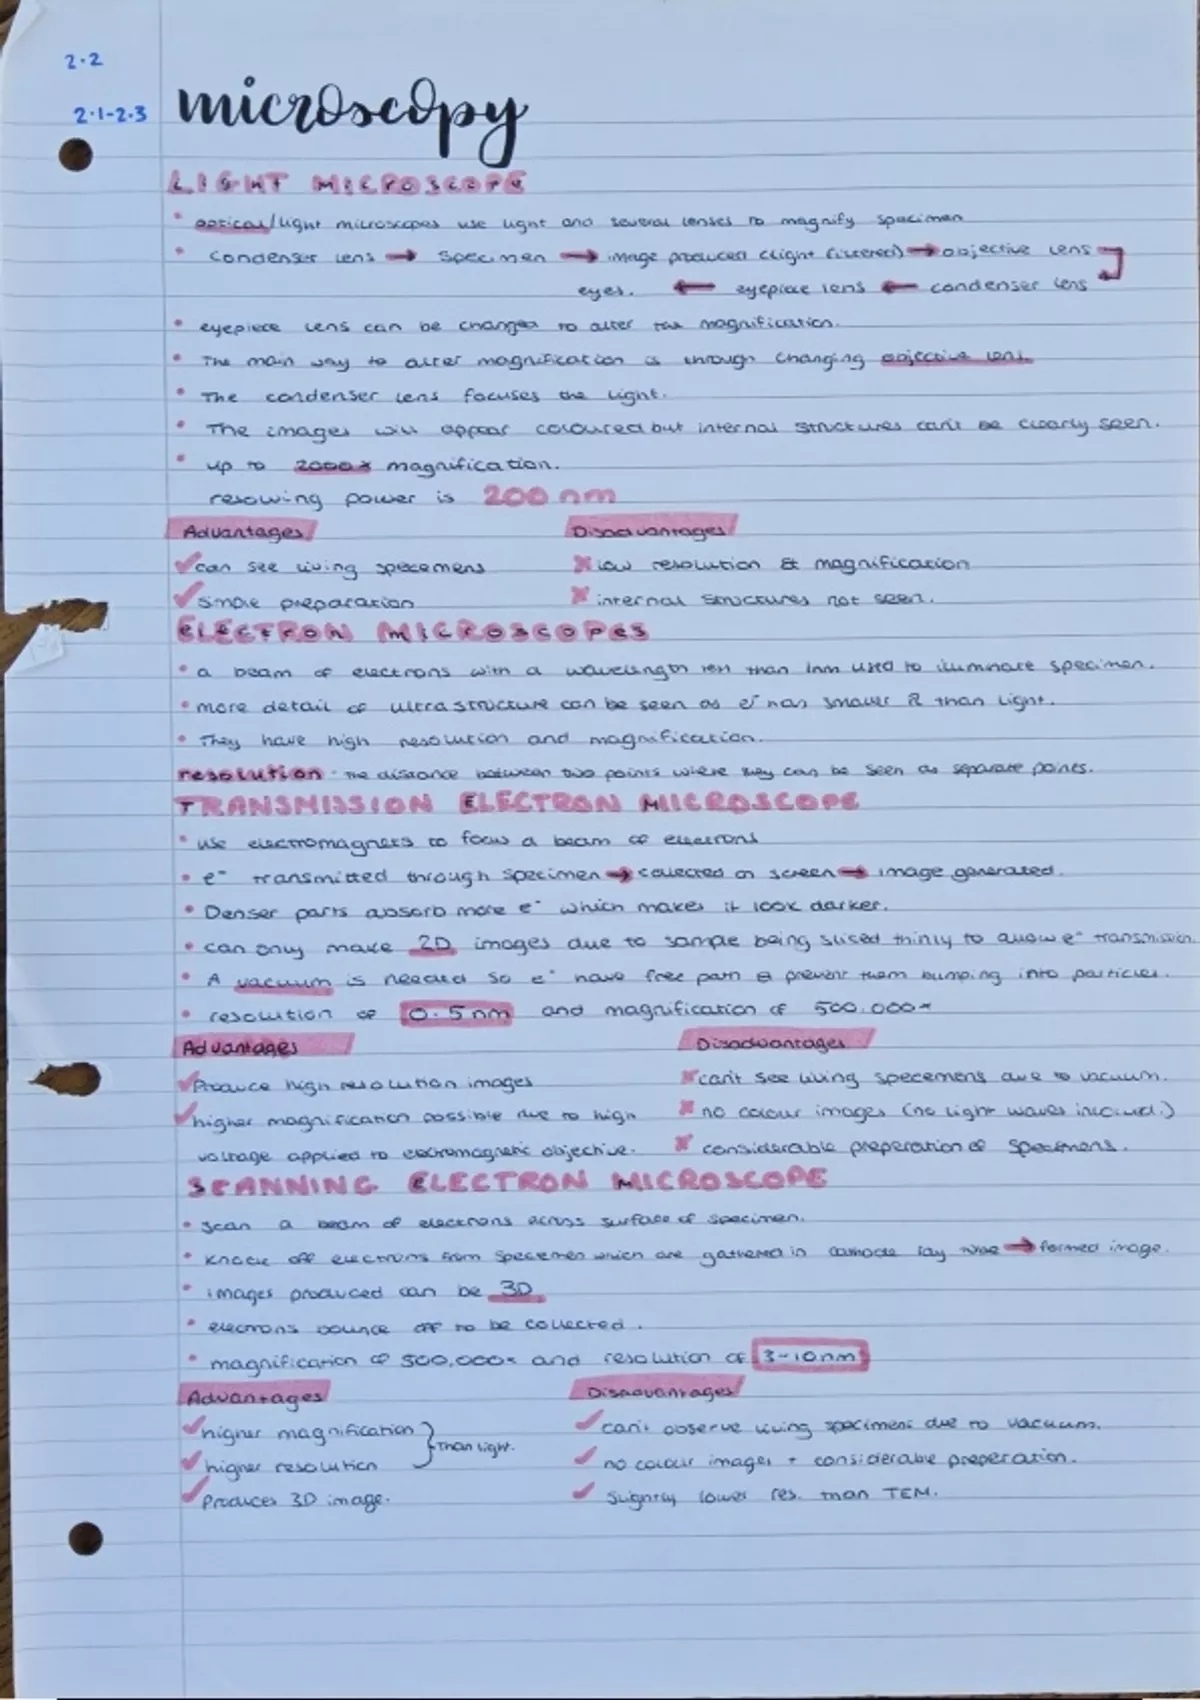 2.2
2.1-2.3
microscopy
LIGHT MICROSCOPE
• optical/light microscopes use light and several lenses to magnify specimen
• condenser lens → specimen → image produced (light filtered) → objective lens
eyes. ← eyepiece lens ← condenser lens
• eyepiece lens can be changed to alter the magnification.
• The main way to alter magnification is through changing objective lens.
• The condenser lens focuses the light.
• The images will appear coloured but internal structures can't be clearly seen.
• up to 2000x magnification.
resolving power is 200nm
Advantages Disadvantages
✓ can see living specemens ✗ low resolution & magnification
✓ simple preparation ✗ internal structures not seen.
ELECTRON MICROSCOPES
• a beam of electrons with a wavelength less than 1nm used to iluminate specimen.
• more detail of ultrastructure can be seen as e⁻ has smaller λ than light.
• They have high resolution and magnification.
resolution - the distance between two points where they can be seen as separate points.
TRANSMISSION ELECTRON MICROSCOPE
• use electromagnets to focus a beam of electrons
• e⁻ transmitted through specimen → collected on screen → image generated.
• Denser parts absorb more e⁻ which makes it look darker.
• can only make 2D images due to sample being sliced thinly to allow e⁻ transmission.
• A vacuum is needed so e⁻ have free path & prevent them bumping into particles.
• resolution of 0.5nm and magnification of 500,000x
Advantages Disadvantages
✓ Produce high resolution images ✗ can't see living specemens due to vacuum.
✓ higher magnification possible due to high ✗ no colour images (no light waves involved.)
voltage applied to electromagnetic objective. ✗ considerable preperation of specemens.
SCANNING ELECTRON MICROSCOPE
• scan a beam of electrons across surface of specimen.
• knock off electrons from specemen which are gathered in cathode ray tube → formed image.
• images produced can be 3D
• electrons bounce off to be collected.
• magnification of 500,000x and resolution of 3-10nm
Advantages Disadvantages
✓ higher magnification } than light. ✓ can't observe living speciments due to vacuum.
✓ higher resolution ✓ no colour images + considerable preperation.
✓ Produces 3D image. ✓ slightly lower res. than TEM.